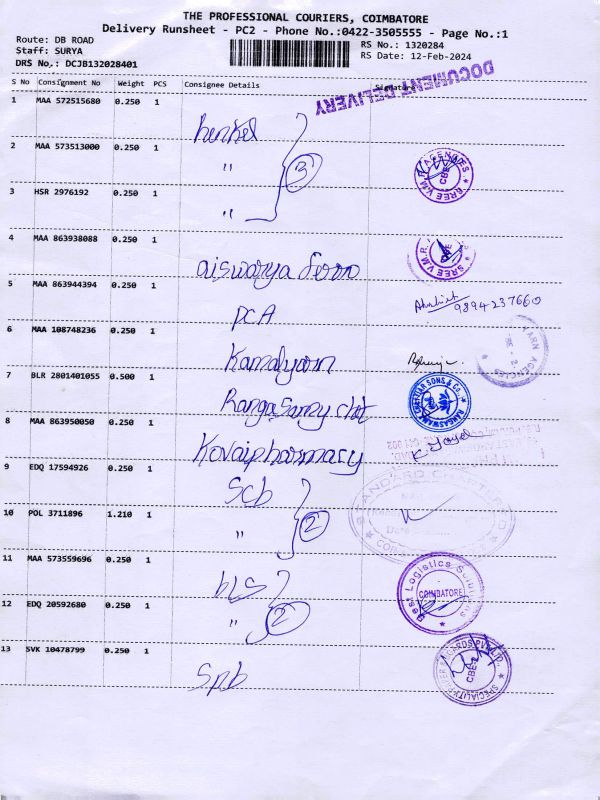 THE PROFESSIONAL COURIERS, COIMBATORE
Delivery Runsheet - PC2 - Phone No.:0422-3505555 - Page No.:1
Route: DB ROAD
RS No.: 1320284
Staff: SURYA
RS Date: 12-Feb-2024
DRS No.: DCJB132028401
DOCUMENT DELIVERY
S No Consignment No Weight PCS Consignee Details Signature
1 MAA 572515680 0.250 1
henkel
2 MAA 573513000 0.250 1
" 3
SREE V.M.R. AGENCIES CBE
3 HSR 2976192 0.250 1
"
4 MAA 863938088 0.250 1
SREE V.M.R.
aiswarya ferro
5 MAA 863944394 0.250 1
9894237660
PCA
6 MAA 108748236 0.250 1
YARN AGENCIES
Kamalyarn
7 BLR 2801401055 0.500 1
RANGASWAMI CHETTIAR SONS & CO.
Ranga Samy chet
8 MAA 863950050 0.250 1
Kovaipharmacy
9 EDQ 17594926 0.250 1
Scb
STANDARD CHARTERED
10 POL 3711896 1.210 1
" 2
11 MAA 573559696 0.250 1
bLS
Best Logistics Solutions COIMBATORE
12 EDQ 20592680 0.250 1
" 2
13 SVK 10478799 0.250 1
CARDS PVT. LTD. CBE SPECIALITY
Spb